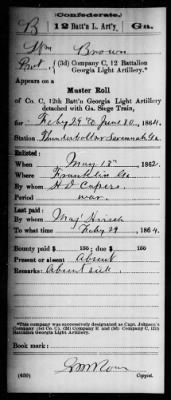 (Confederate.)
B 12 Batt'n L. Art'y. Ga.
Wm Brown
Pvt, (3d) Company C, 12 Battalion
Georgia Light Artillery.*
Appears on a
Muster Roll
of Co. C, 12th Batt'n Georgia Light Artillery
detached with Ga. Siege Train,
for Feby 29 to June 30, 1864.
Station Thunderbolt nr Savannah Ga.
Enlisted:
When May 1st, 1862.
Where Franklin Ga
By whom H D Capers
Period war.
Last paid:
By whom Maj Hirsch
To what time Feby 29, 1864.
Bounty paid $ 100; due $ 100
Present or absent Absent
Remarks: Absent sick.
*This company was successively designated as Capt. Johnson's
Company (3d) Co. C; (3d) Company E and (3d) Company C, 12th
Battalion Georgia Light Artillery.
Book mark:
(400) Copyist.